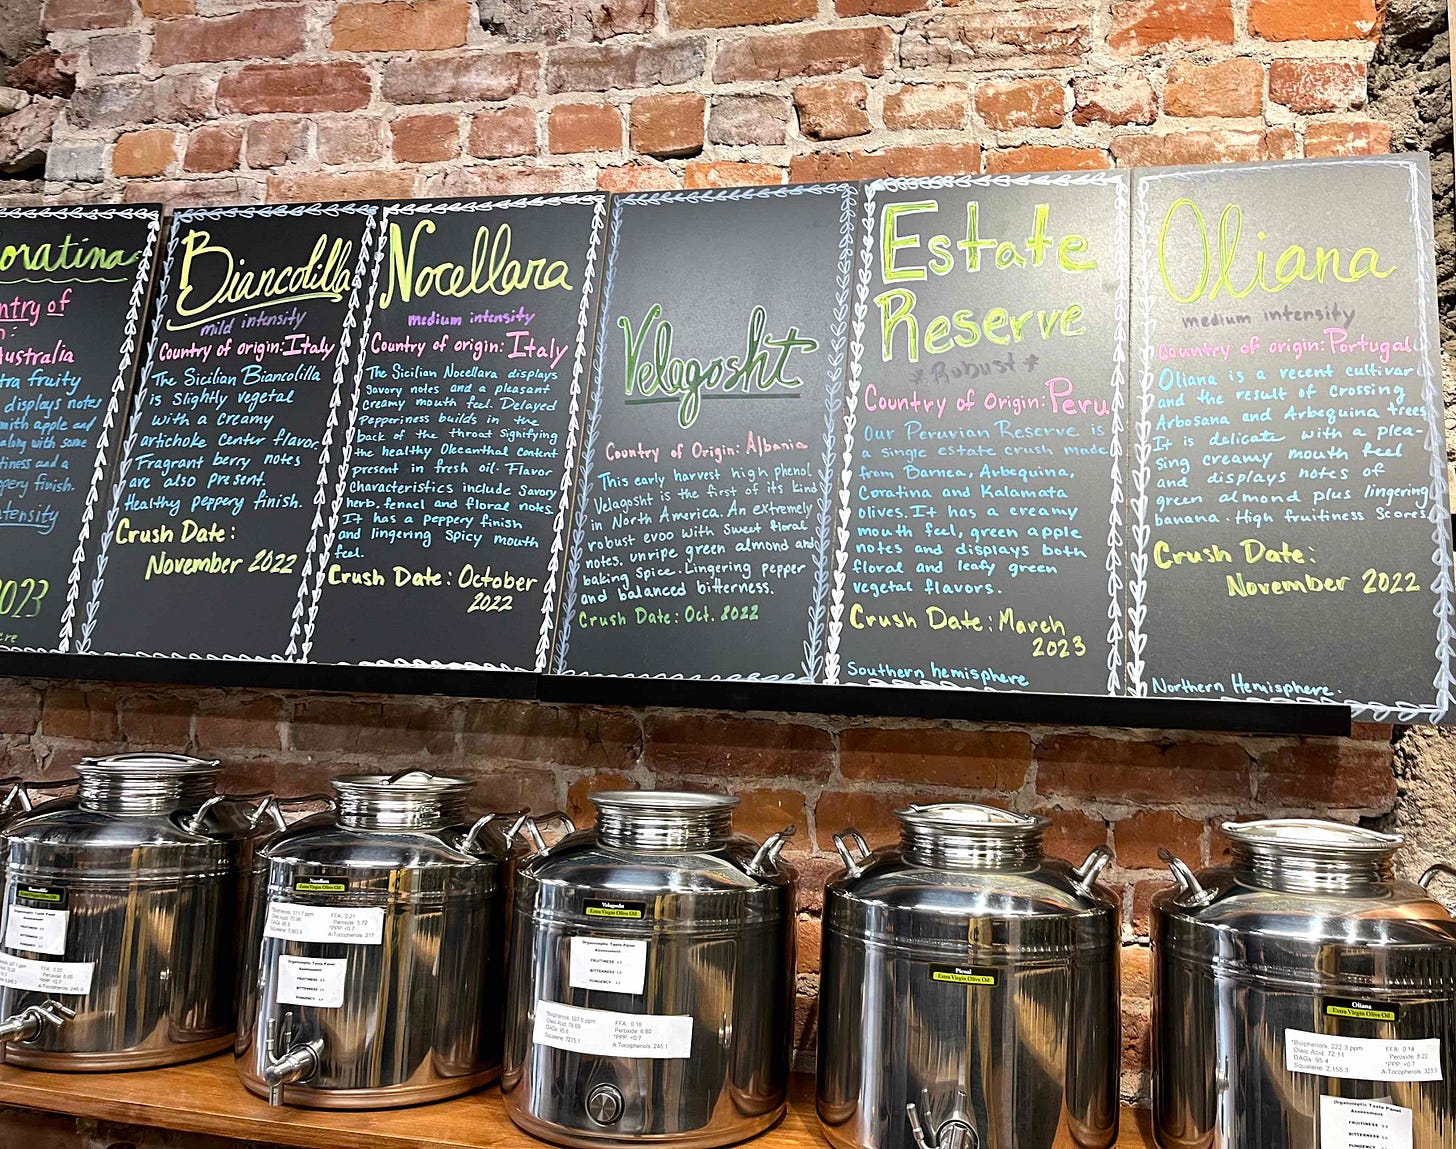 oratina
ntry of
n:
ustralia
tra fruity
displays notes
mith apple and
along with some
tiness and a
pery finish.
tensity
2023
ere
Biancolilla
mild intensity
Country of origin: Italy
The Sicilian Biancolilla
is slightly vegetal
with a creamy
artichoke center flavor.
Fragrant berry notes
are also present.
Healthy peppery finish.
Crush Date:
November 2022
Nocellara
medium intensity
Country of origin: Italy
The Sicilian Nocellara displays
savory notes and a pleasant
creamy mouth feel. Delayed
Pepperiness builds in the
back of the throat signifying
the healthy Oleocanthal content
present in fresh oil. Flavor
characteristics include savory
herb, fennel and floral notes.
It has a peppery finish
and lingering spicy mouth
feel.
Crush Date: October
2022
Velagosht
Country of Origin: Albania
This early harvest high phenol
Velagosht is the first of its kind
in North America. An extremely
robust evoo with sweet floral
notes, unripe green almond and
baking spice. Lingering pepper
and balanced bitterness.
Crush Date: Oct. 2022
Estate
Reserve
*Robust*
Country of Origin: Peru
Our Peruvian Reserve is
a single estate crush made
from Barnea, Arbequina,
Coratina and Kalamata
olives. It has a creamy
mouth feel, green apple
notes and displays both
floral and leafy green
vegetal flavors.
Crush Date: March
2023
Southern hemisphere
Oliana
medium intensity
Country of origin: Portugal
Oliana is a recent cultivar
and the result of crossing
Arbosana and Arbequina trees
It is delicate with a plea-
sing creamy mouth feel
and displays notes of
green almond plus lingering
banana. High fruitiness scores.
Crush Date:
November 2022
Northern Hemisphere.
Extra Virgin Olive Oil
Organoleptic Taste Panel
Assessment
FFA: 0.25
Peroxide: 6.65
*PPP: <0.7
A-Tocopherols: 245.9
Nocellara
Extra Virgin Olive Oil
*Biophenols: 311.7 ppm
Oleic Acid: 70.98
FFA: 0.21
Peroxide: 5.72
*PPP: <0.7
A-Tocopherols: 217
Organoleptic Taste Panel
Assessment
FRUITINESS
BITTERNESS
PUNGENCY
Velagosht
Extra Virgin Olive Oil
Organoleptic Taste Panel
Assessment
FRUITINESS
BITTERNESS
PUNGENCY
*Biophenols: 597.6 ppm
Oleic Acid: 78.69
DAGs: 95.6
Squalene: 7275.1
FFA: 0.16
Peroxide: 6.80
*PPP: <0.7
A-Tocopherols: 245.1
Picual
Extra Virgin Olive Oil
Oliana
Extra Virgin Olive Oil
*Biophenols: 222.3 ppm
Oleic Acid: 72.11
DAGs: 95.4
Squalene: 2,155.3
FFA: 0.14
Peroxide: 8.22
*PPP: <0.7
Organoleptic Taste Panel
Assessment
FRUITINESS
BITTERNESS
PUNGENCY